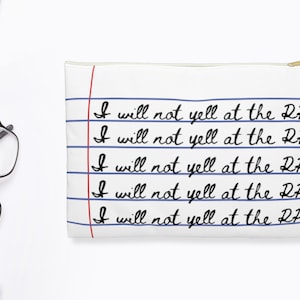 I will not yell at the RA
I will not yell at the RA
I will not yell at the RA
I will not yell at the RA
I will not yell at the RA